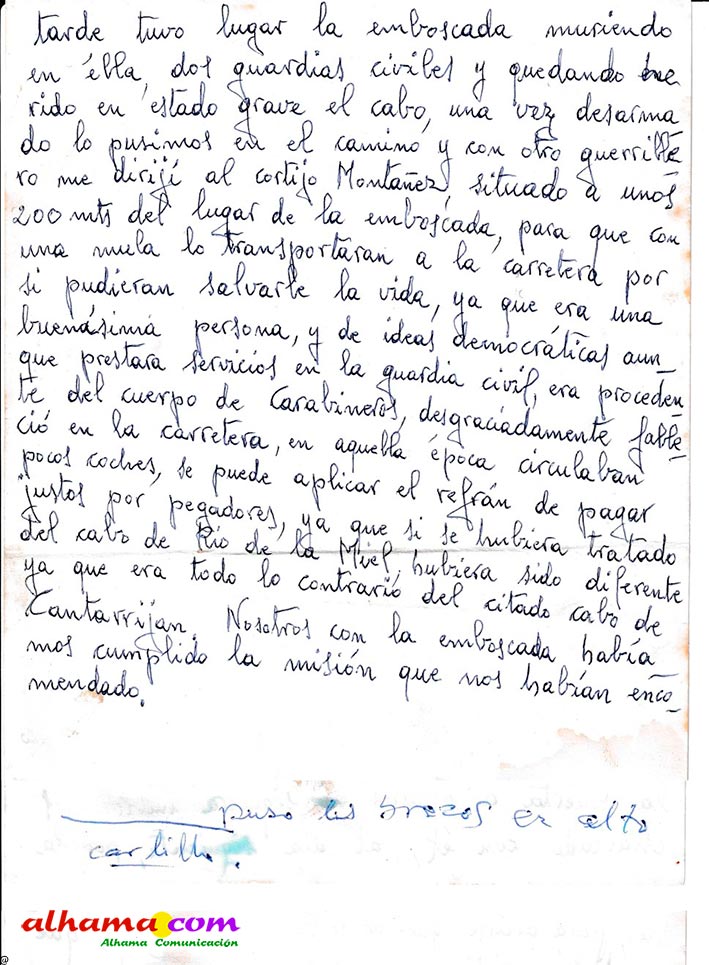 tarde tuvo lugar la emboscada muriendo
en élla, dos guardias civiles y quedando he
rido en estado grave el cabo, una vez desarma
do lo pusimos en el camino y con otro guerrille
ro me dirijí al cortijo Montañez, situado a unos
200 mts del lugar de la emboscada, para que con
una mula lo transportaran a la carretera por
si pudieran salvarle la vida, ya que era una
buenásima persona, y de ideas democráticas aun_
que prestara servicios en la guardia civil, era proceden_
te del cuerpo de Carabineros, desgraciadamente falle_
ció en la carretera, en aquella época circulaban
pocos coches, se puede aplicar el refrán de pagar
justos por pegadores, ya que si se hubiera tratado
del cabo de Río de la Miel, hubiera sido diferente
ya que era todo lo contrario del citado cabo de
Cantarriján. Nosotros con la emboscada había_
mos cumplido la misión que nos habían enco_
mendado.
puso los brazos en alto
alhama.com
Alhama Comunicación
@